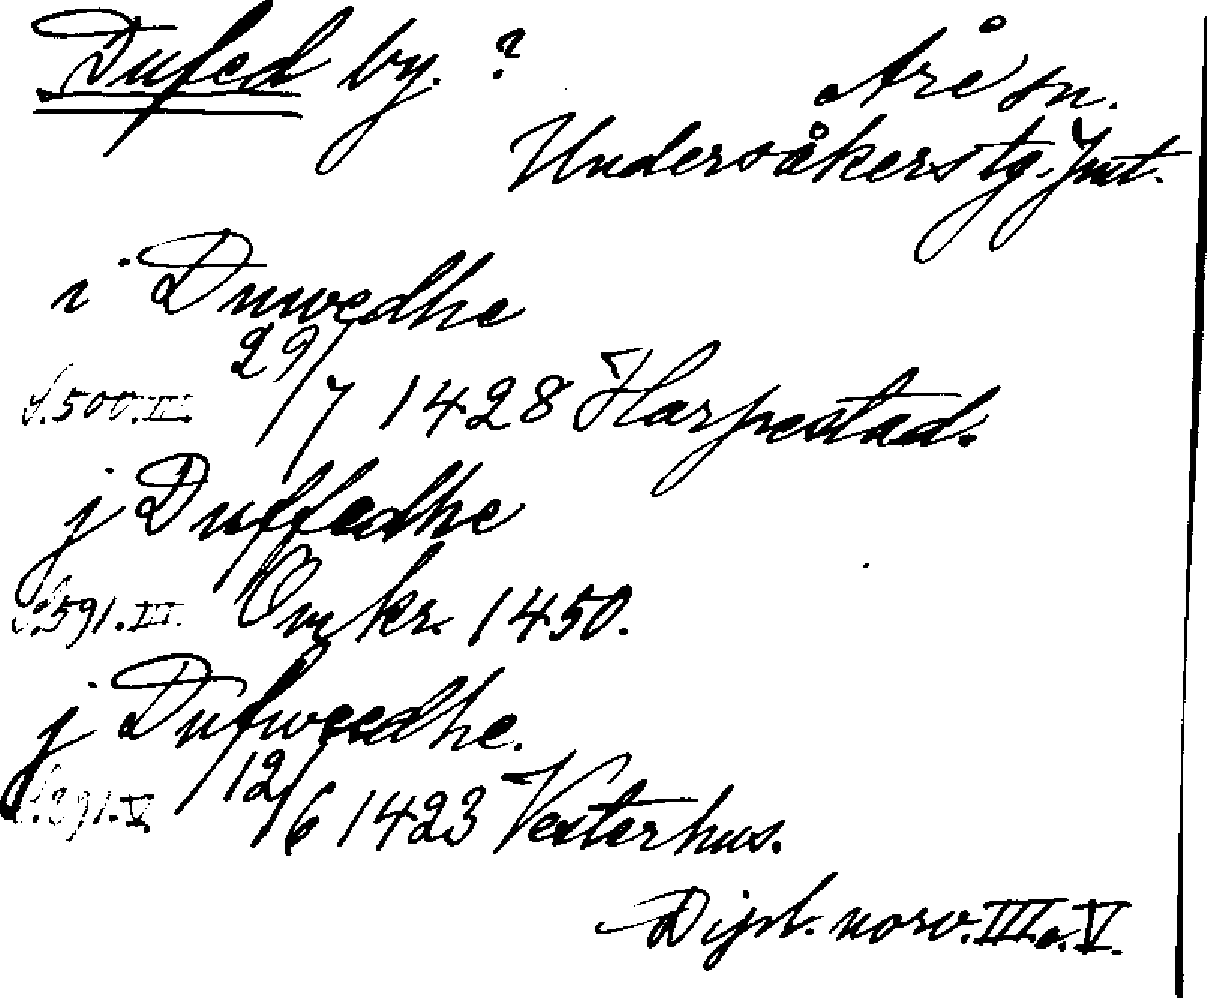 Dufed by. ?
Åre sn.
Undersåkers tg. Jmt.
i Duwedhe
S. 500. III. 29/7 1428 Harpestad.
j Duffedhe
S. 591. III. Omkr. 1450.
j Dufweedhe.
S. 391. V. 12/6 1423 Vesterhus.
Dipl. norv. III. o. V.